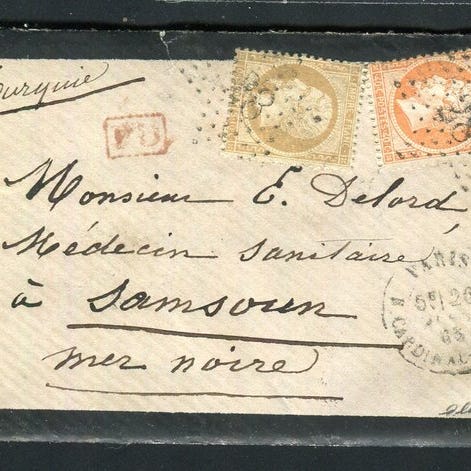 Turquie
PD
Monsieur E. Delord
Médecin Sanitaire
à Samsoun
mer noire
PARIS
5E 26
65
R. CARDINAL